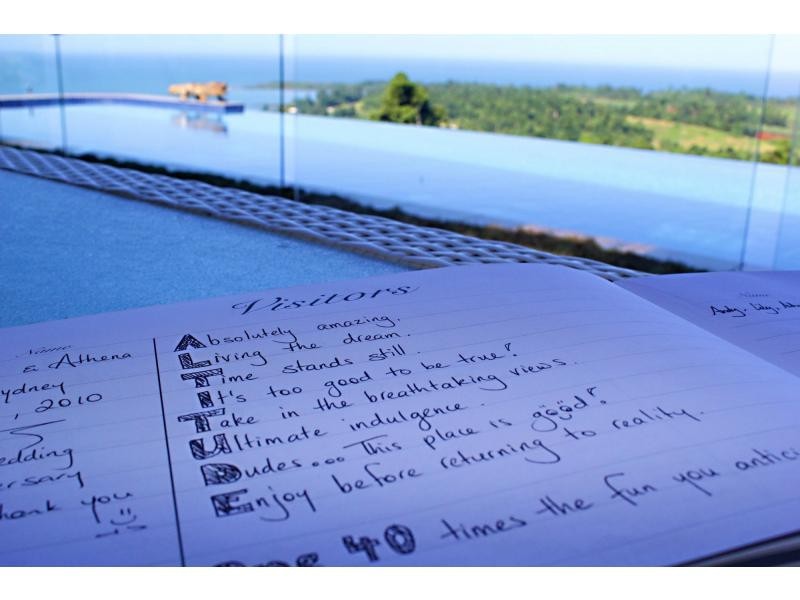 Visitors
Name
& Athena
Sydney
, 2010
edding
ersary
hank you
Absolutely amazing.
Living the dream.
Time stands still.
It's too good to be true!
Take in the breathtaking views.
Ultimate indulgence.
Dudes... This place is good!
Enjoy before returning to reality.
40 times the fun you antici
Name
Andy. Lily.